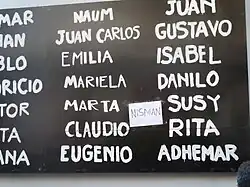 MAR NAUM JUAN
MAN JUAN CARLOS GUSTAVO
BLO EMILIA ISABEL
RICIO MARIELA DANILO
TOR MARTA NISMAN SUSY
TA CLAUDIO RITA
ANA EUGENIO ADHEMAR